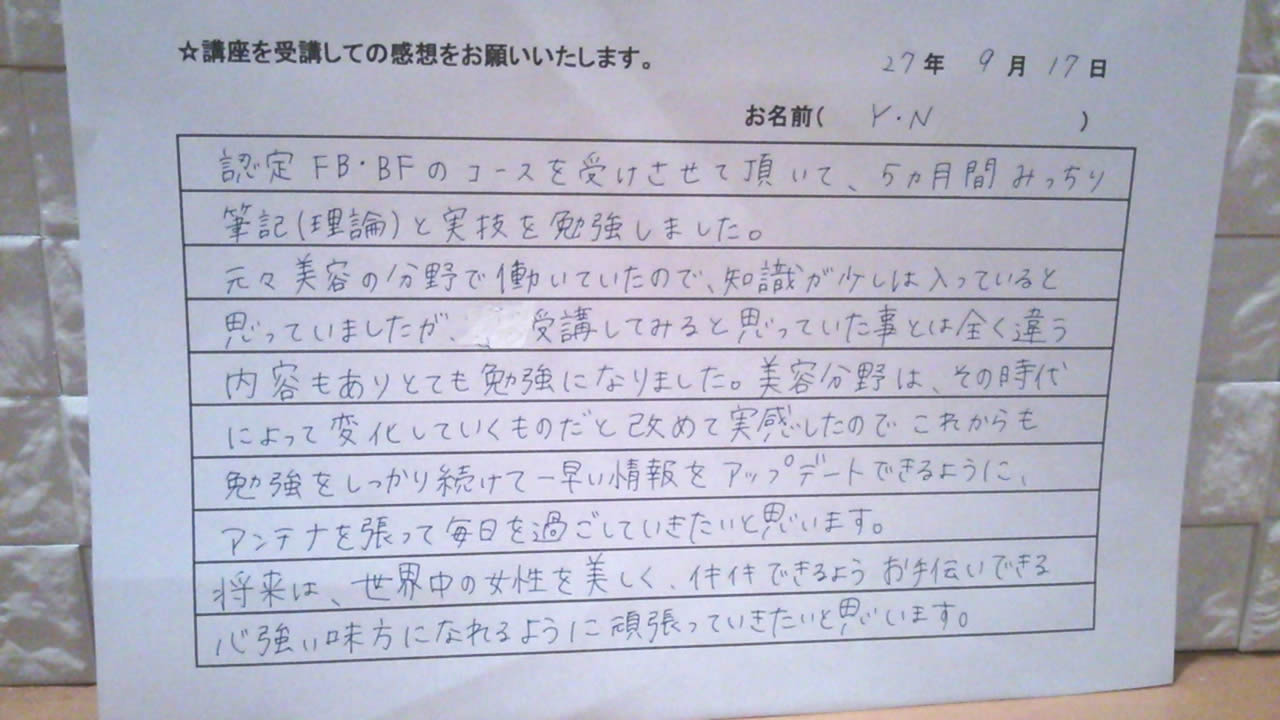 ☆講座を受講しての感想をお願いいたします。
27年 9月 17日
お名前( Y・N )
認定FB・BFのコースを受けさせて頂いて、5ヵ月間みっちり
筆記(理論)と実技を勉強しました。
元々美容の分野で働いていたので、知識が少しは入っていると
思っていましたが、受講してみると思っていた事とは全く違う
内容もありとても勉強になりました。美容分野は、その時代
によって変化していくものだと改めて実感したのでこれからも
勉強をしっかり続けて一早い情報をアップデートできるように、
アンテナを張って毎日を過ごしていきたいと思います。
将来は、世界中の女性を美しく、イキイキできるようお手伝いできる
心強い味方になれるように頑張っていきたいと思います。